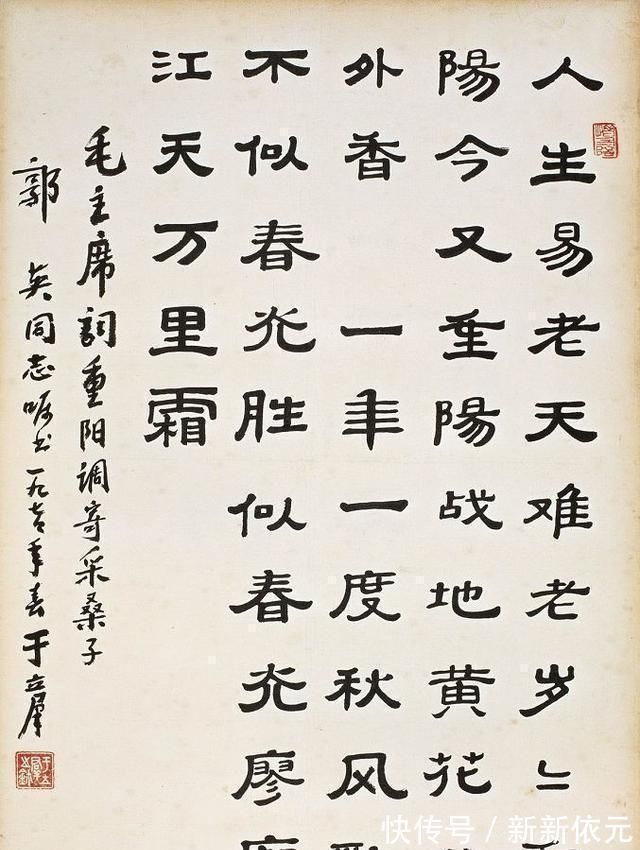 人生易老天难老岁二
陽今又重陽战地黄花
外香 一年一度秋风
不似春光胜似春光廖
江天万里霜
毛主席詞重阳调寄采桑子
郭 英同志嘱书一九七七年春于立群
快传号 / 新新依元